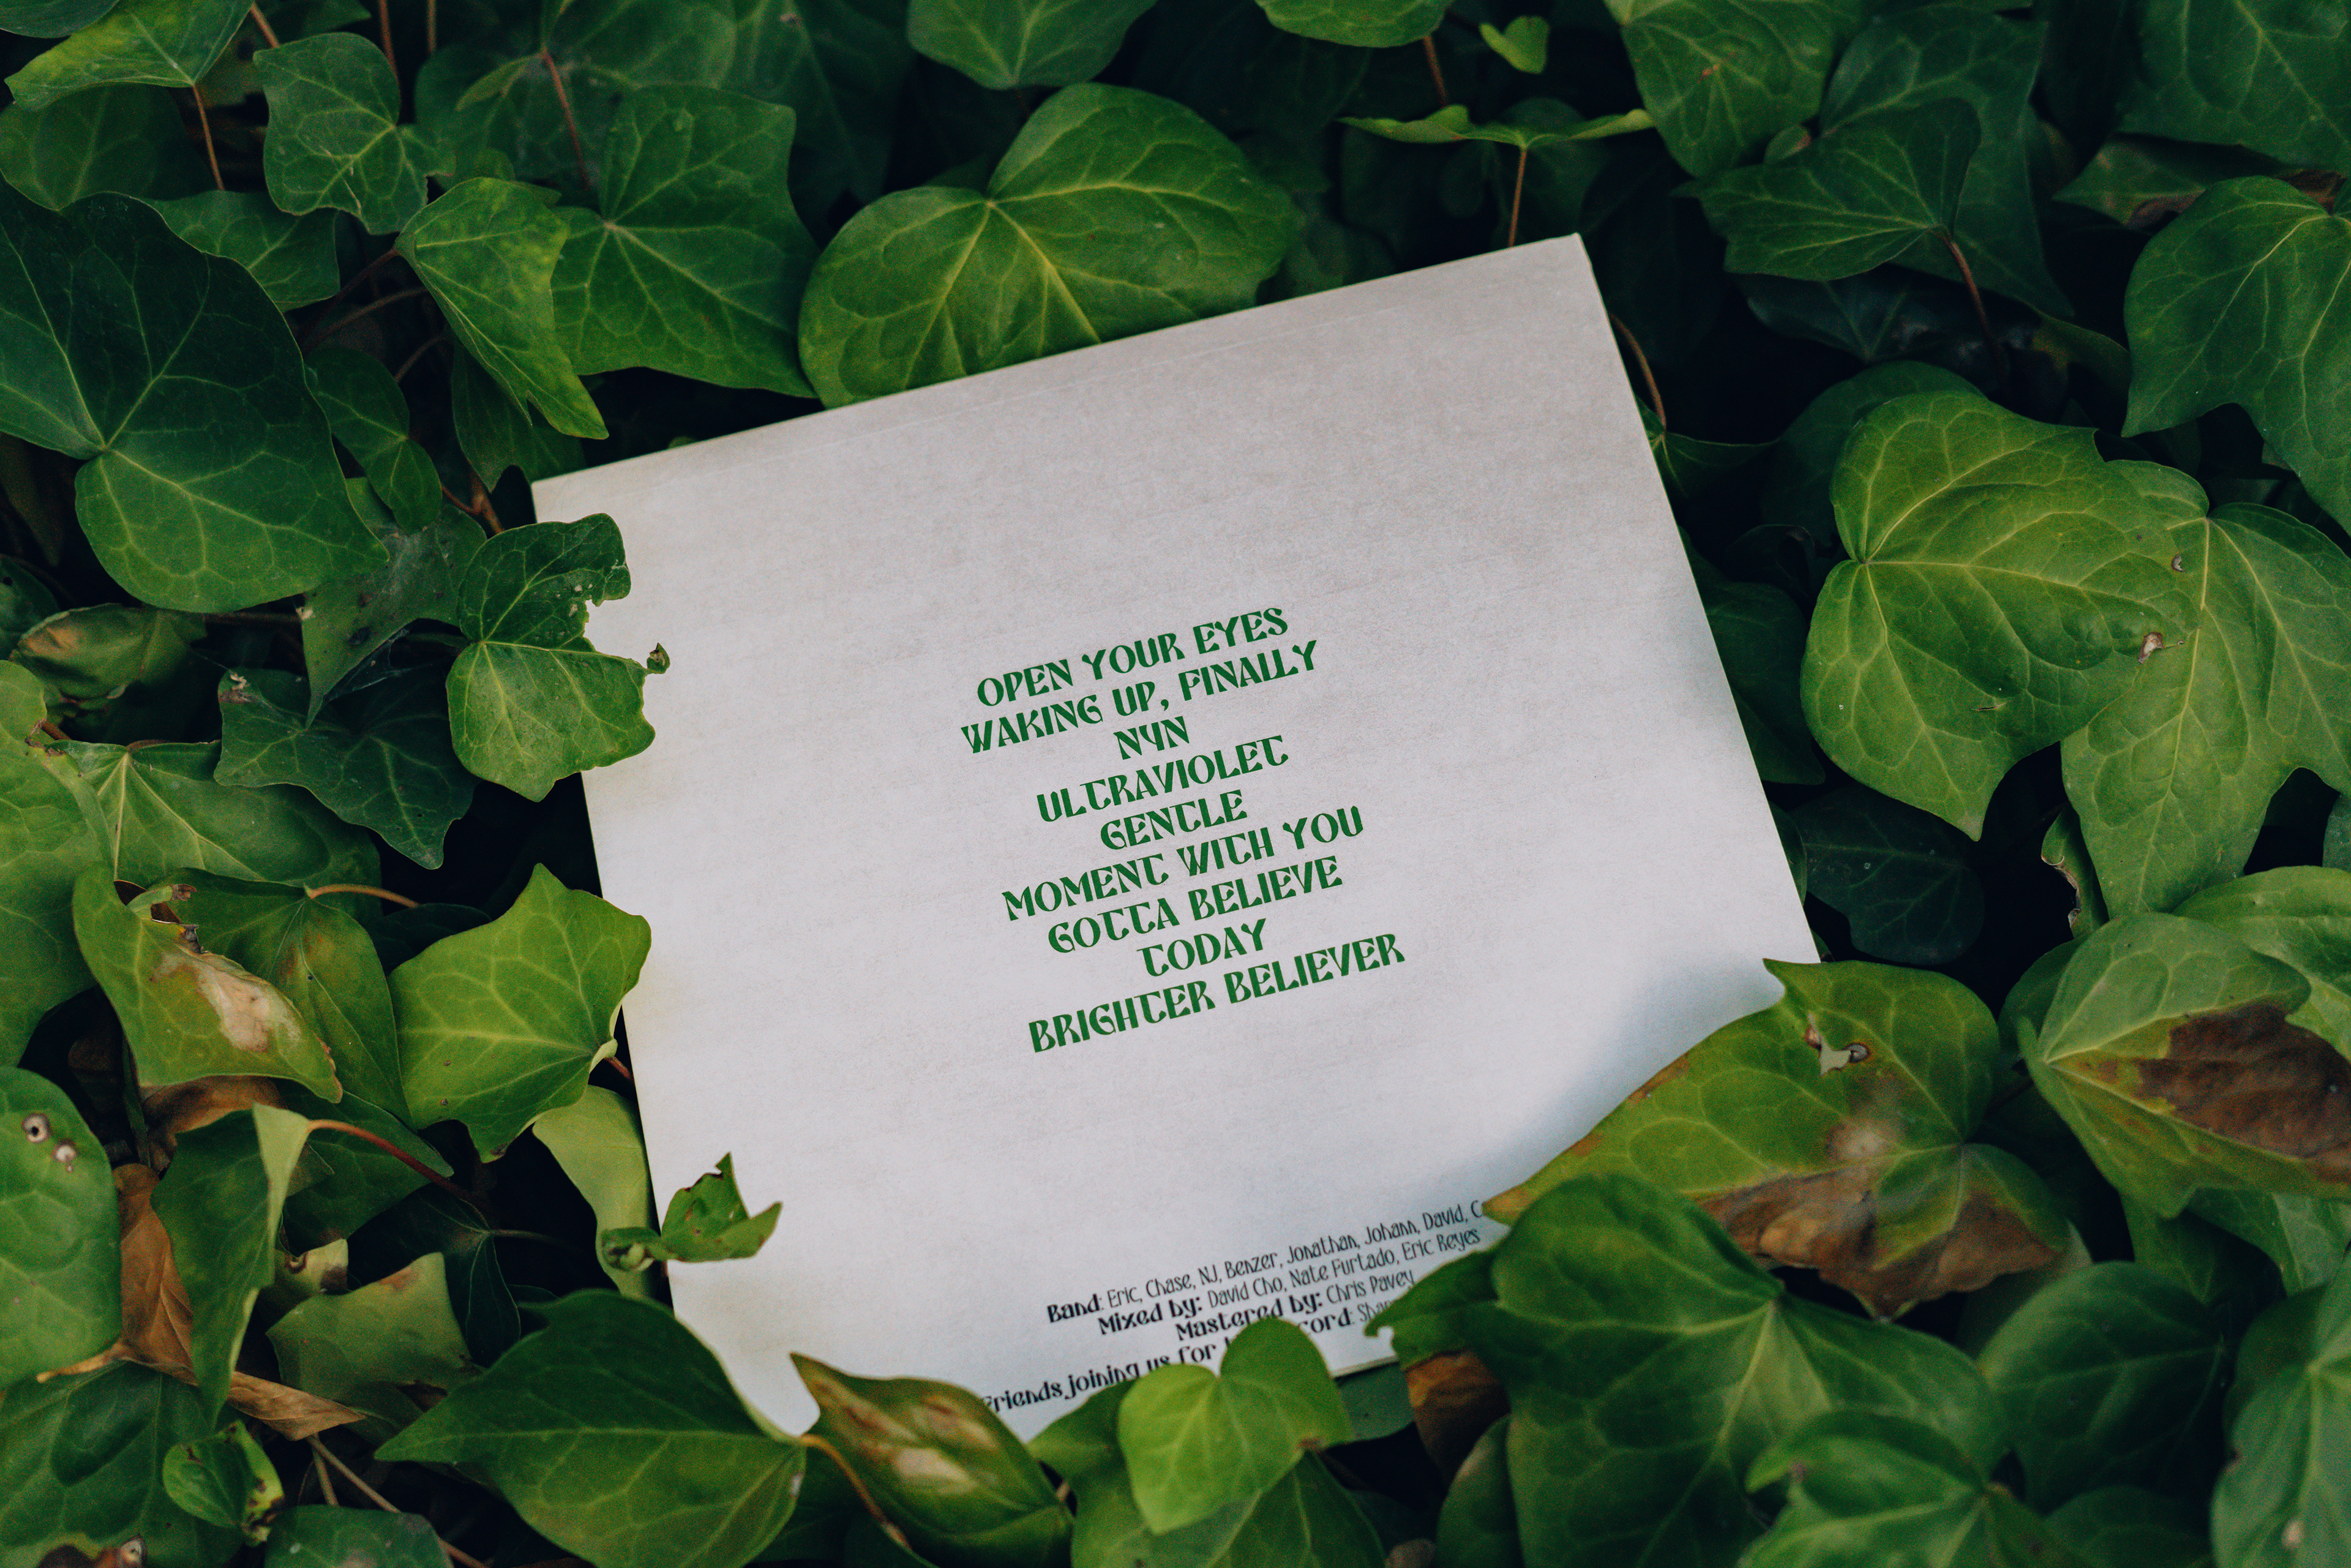 OPEN YOUR EYES
WAKING UP, FINALLY
NYN
ULTRAVIOLET
GENTLE
MOMENT WITH YOU
GOTTA BELIEVE
TODAY
BRIGHTER BELIEVER
Band: Eric, Chase, NJ, Benzer, Jonathan, Johann, David,
Mixed by: David Cho, Nate Furtado, Eric Reyes
Mastered by: Chris Pavey
Friends joining us for